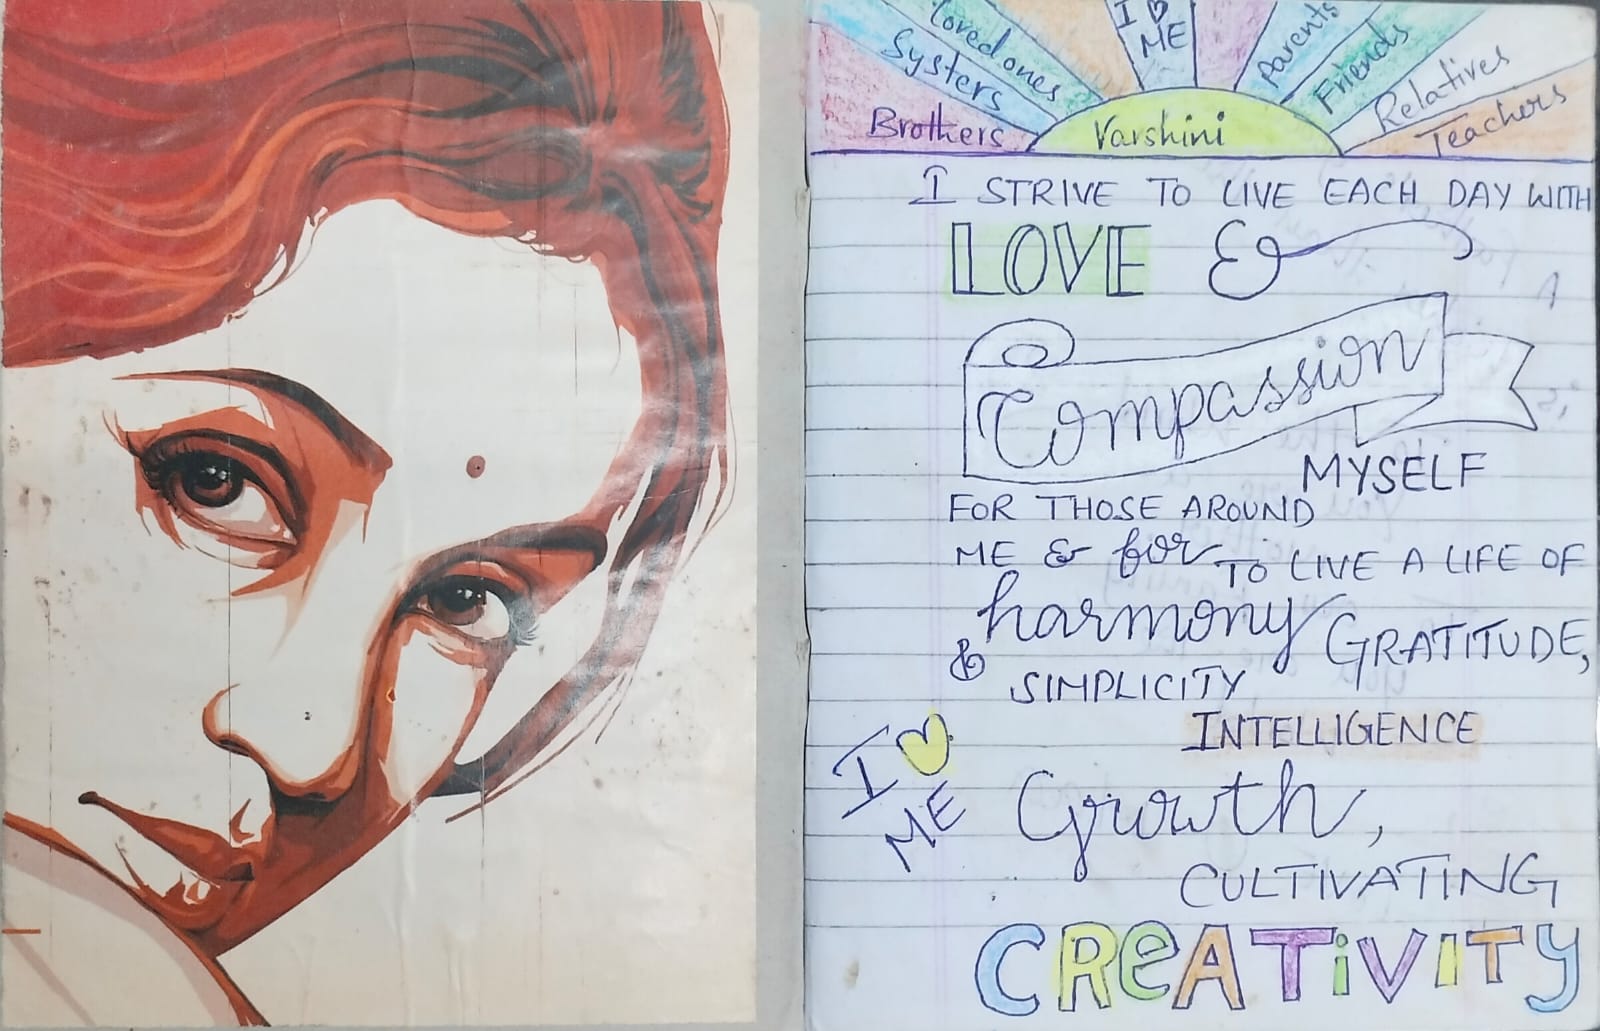 Brothers
Systers
Loved ones
I ♡ ME
Parents
Friends
Relatives
Teachers
Varshini
I STRIVE TO LIVE EACH DAY WITH
LOVE &
Compassion
MYSELF
FOR THOSE AROUND
ME & for TO LIVE A LIFE OF
harmony GRATITUDE,
& SIMPLICITY
INTELLIGENCE
I ♡ ME
Growth,
CULTIVATING
CREATIVITY